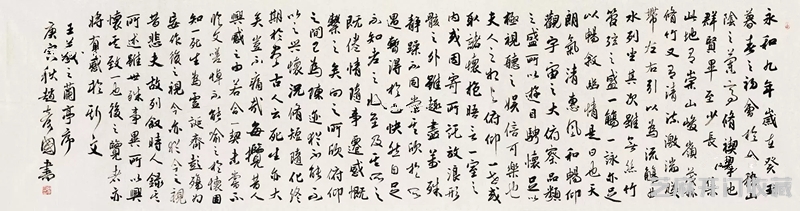 永和九年歲在癸丑
暮春之初會於會稽山
陰之蘭亭脩禊事也
群賢畢至少長咸集
此地有崇山峻嶺茂林
脩竹又有清流激湍映
帶左右引以為流觴曲
水列坐其次雖無絲竹
管弦之盛一觴一詠亦足
以暢敘幽情是日也天
朗氣清惠風和暢仰
觀宇宙之大俯察品類
之盛所以遊目騁懷足以
極視聽之娛信可樂也
夫人之相與俯仰一世或
取諸懷抱晤言一室之
內或因寄所託放浪形
骸之外雖趣舍萬殊
靜躁不同當其欣於所
遇暫得於己快然自足
不知老之將至及其所之
既倦情隨事遷感慨
係之矣向之所欣俯仰
之間已為陳跡猶不能不
以之興懷況脩短隨化終
期於盡古人云死生亦大
矣豈不痛哉每攬昔人
興感之由若合一契未嘗不
臨文嗟悼不能喻之於懷固
知一死生為虛誕齊彭殤為
妄作後之視今亦猶今之視
昔悲夫故列敘時人錄其
所述雖世殊事異所以興
懷其致一也後之覽者亦
將有感於斯文
王羲之蘭亭序
庚寅秋趙國書